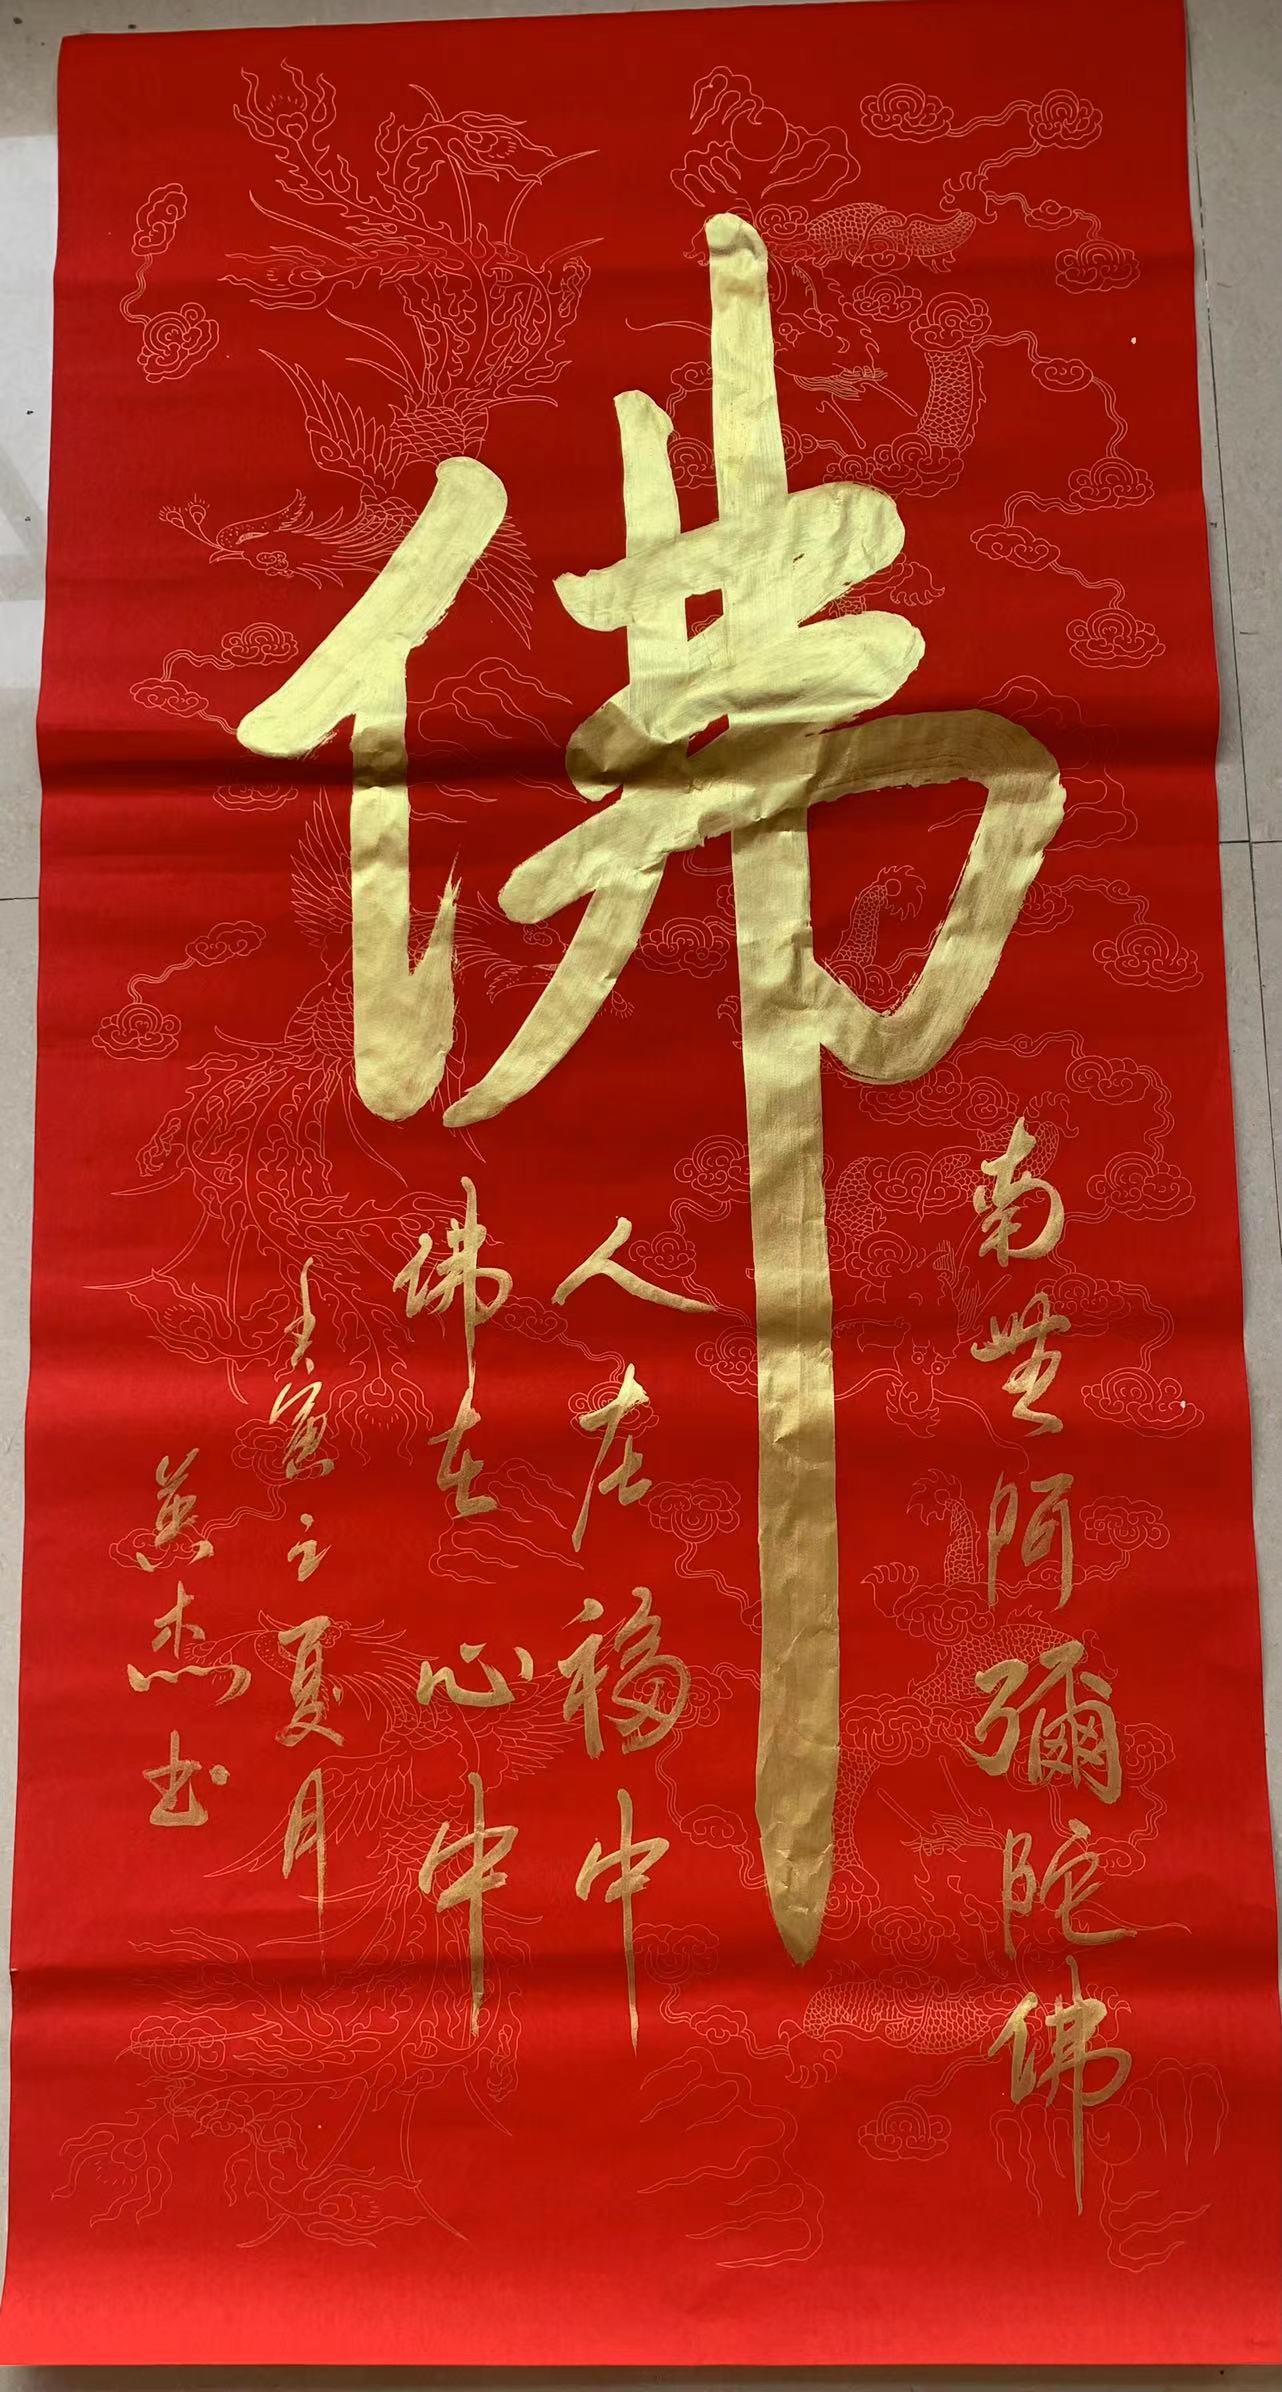 佛
南無阿彌陀佛
人在福中
佛在心中
壬寅之夏月
英杰书